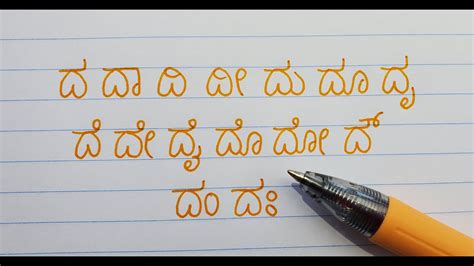 ದ ದಾ ದಿ ದೀ ದು ದೂ ದೃ
ದೆ ದೇ ದೈ ದೊ ದೋ ದ್
ದಂ ದಃ